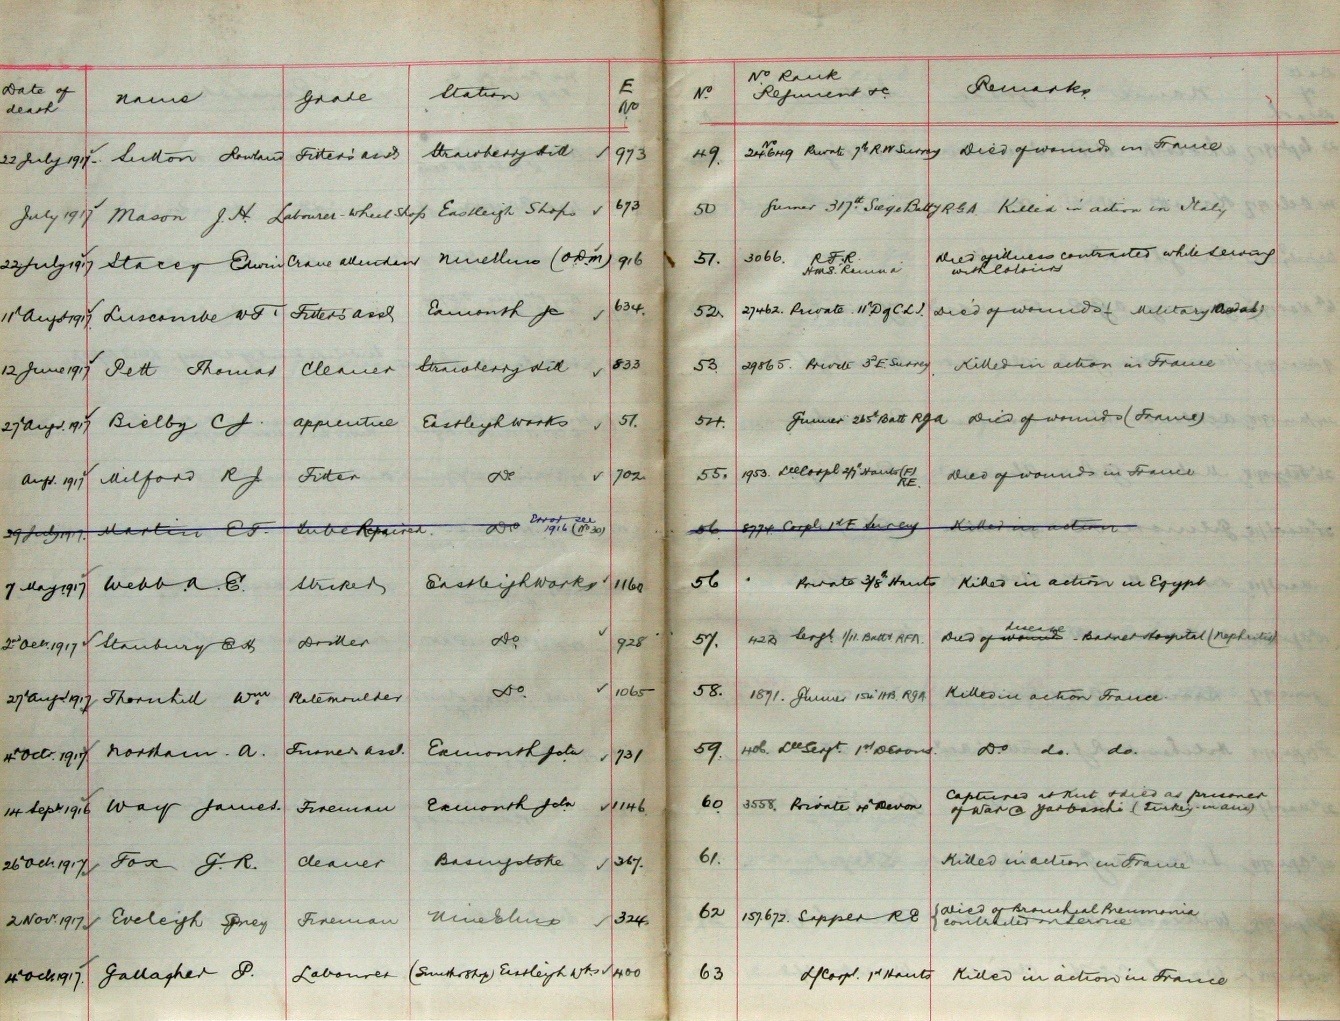 Date of death Name Grade Station E No No. No Rank Regiment &c Remarks
22 July 1917 Sutton Rowland Fitter's asst Strawberry Hill 973 49. Private 7th R W Surrey Died of wounds in France
July 1917 Mason J. H. Labourer - Wheel Shop Eastleigh Shops 673 50 Gunner 317th Siege Batty R G A Killed in action in Italy
22 July 1917 Stacey Edwin Crane attendant Nine Elms 916 51. 3066. R.F.R. Died of illness contracted while serving
H.M.S. with Colours
11th Augt 1917 Luscombe W F Fitter's Asst Exmouth Jc 634. 52. 27462. Private 11th D of C L I. Died of wounds Military Medal
12 June 1917 Pett Thomas Cleaner Strawberry Hill 833 53 29865. Private E. Surrey Killed in action in France
27 Augt. 1917 Bielby C J. apprentice Eastleigh Works 51. 54. Gunner 265th Batt R G A Died of wounds (France)
Augt. 1917 Milford R J Fitter Do 702 55. 1953. Lce Corpl 2/7th Hants (F) R.E. Died of wounds in France
29 July 1917. Martin E F. Tube Repairer. Do Error see 1916 (No 30) 56 8774 Corpl 1st E Surrey Killed in action
7 May 1917 Webb A. E. Striker Eastleigh Works 1160 56 Private 3/8th Hants Killed in action in Egypt
2nd Oct. 1917 Stanbury E H Driller Do. 928 57. Sergt. 1/11. Batty RFA. Died of wounds disease - Barnet Hospital (Nephritis)
27th Augt 1917 Thornhill Wm. Platemoulder Do. 1065 58. 1891. Gunner R G A Killed in action France
4th Octr. 1917 Northam A. Turner's asst. Exmouth Jctn 731 59. 406. Lce Sergt. 1st Devons. Do do. do.
14 Sept 1916 Way James. Fireman Exmouth Jctn 1146 60 3558. Private 4th Devon Captured at Kut & died as prisoner
of War @ Yarbaschi (Turkey-in-asia)
26th Oct. 1917 Fox G. R. Cleaner Basingstoke 367. 61. Killed in action in France
2 Nov. 1917 Eveleigh Fireman Nine Elms 324 62 157,672. Sapper R E Died of Bronchial Pneumonia
contracted on Service
4th Oct. 1917. Gallagher P. Labourer (Smith's Shop) Eastleigh Wks 400 63 L/Corpl. 1st Hants Killed in action in France